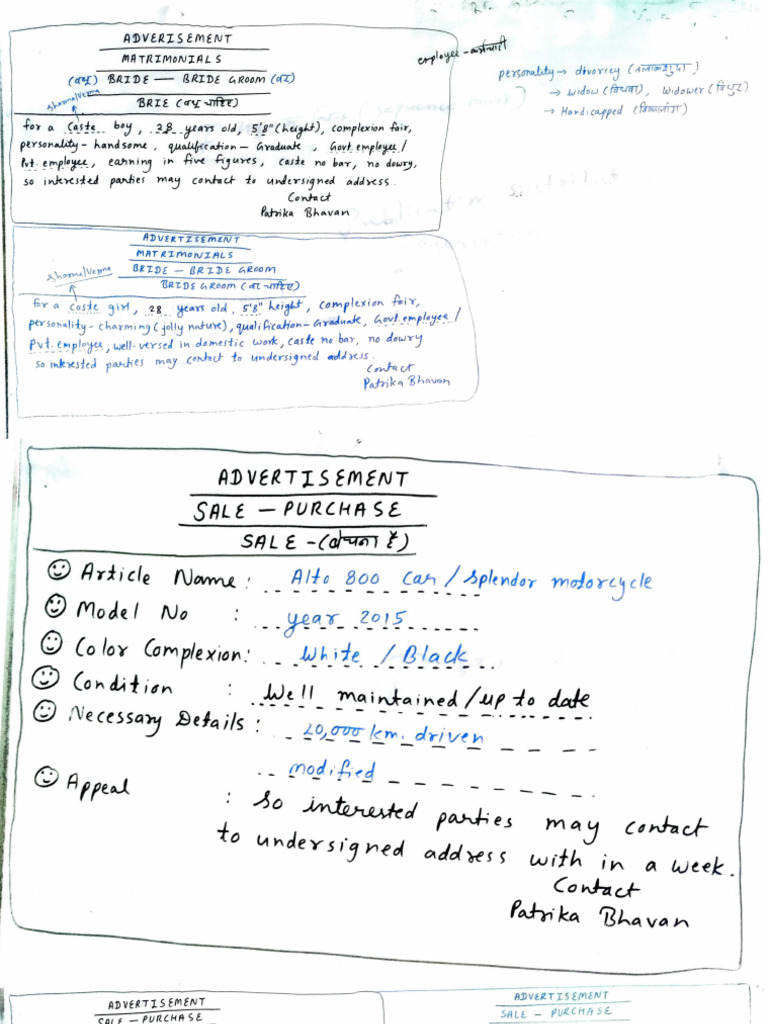 ADVERISEMENT
MATRIMONIALS
(वधू) BRIDE — BRIDE GROOM (वर)
Sharma/Verma
BRIE (वधू चाहिए)
for a Caste boy, 28 years old, 5'8" (height), complexion fair,
personality- handsome, qualification- Graduate, Govt. employee/
Pvt. employee, earning in five figures, caste no bar, no dowry,
so interested parties may contact to undersigned address.
Contact
Patrika Bhavan
employee - कर्मचारी
personality → divorcey (तलाकशुदा)
→ widow (विधवा), widower (विधुर)
→ Handicapped (विकलांग)
ADVERTISEMENT
MATRIMONIALS
BRIDE — BRIDE GROOM
Sharma/Verma
BRIDE GROOM (वर चाहिए)
for a caste girl, 28 years old, 5'8" height, complexion fair,
personality- charming (jolly nature), qualification- Graduate, Govt. employee/
Pvt. employee, well-versed in domestic work, caste no bar, no dowry
so interested parties may contact to undersigned address.
Contact
Patrika Bhavan
ADVERTISEMENT
SALE — PURCHASE
SALE - (बेचना है)
Article Name: Alto 800 car / splendor motorcycle
Model No : year 2015
Color Complexion: White / Black
Condition : Well maintained / up to date
Necessary Details: 20,000 km. driven
modified
Appeal : So interested parties may contact
to undersigned address with in a week.
Contact
Patrika Bhavan
ADVERTISEMENT
SALE — PURCHASE
ADVERTISEMENT
SALE — PURCHASE